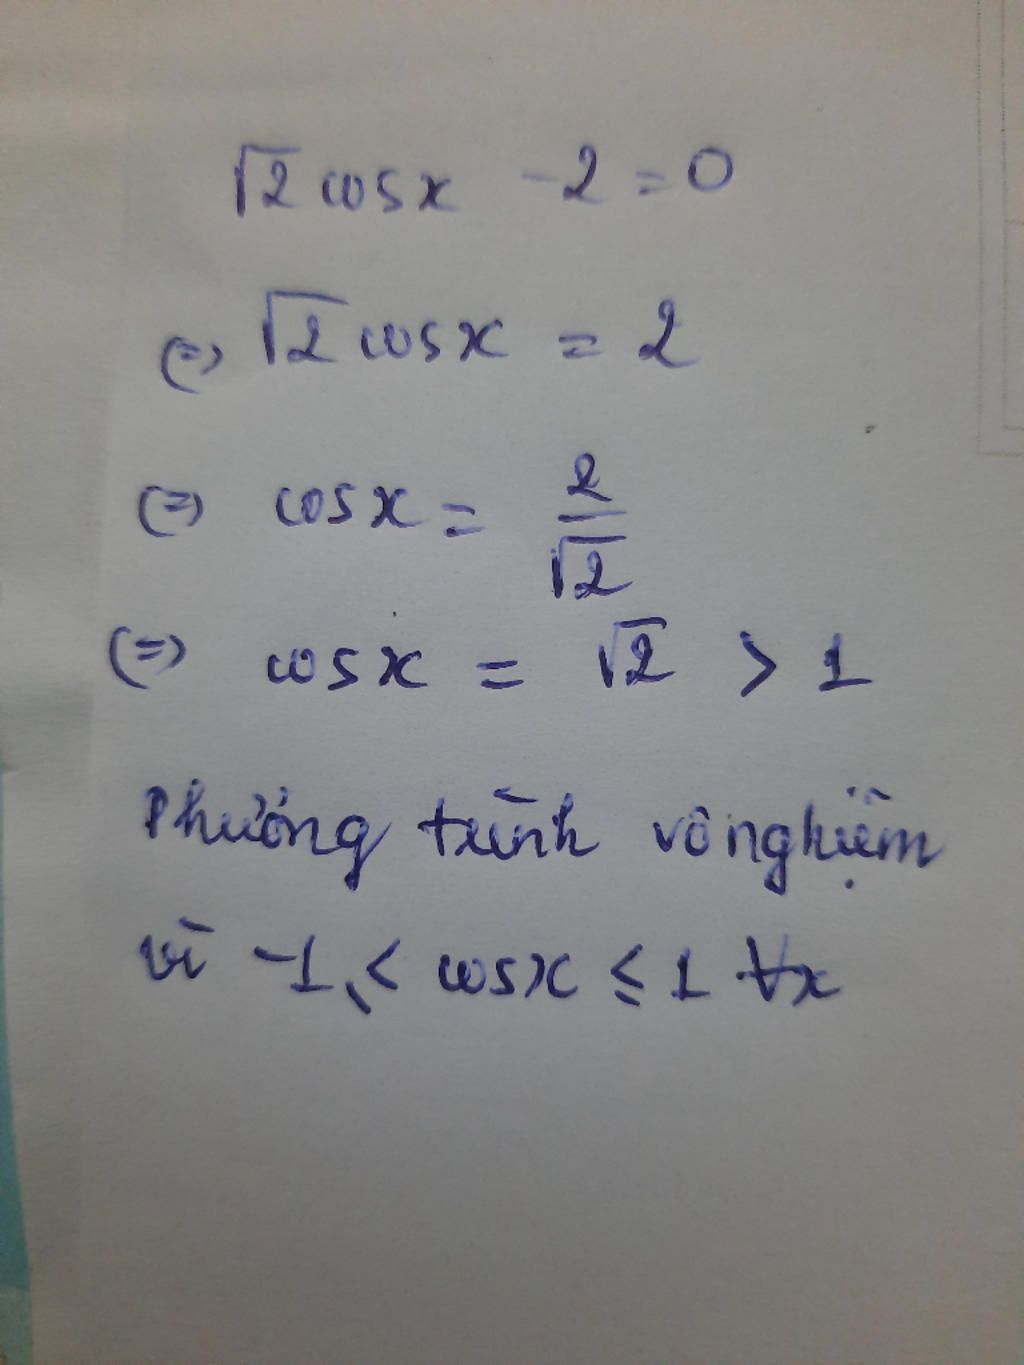 √2 cosx - 2 = 0
(=) √2 cosx = 2
(=) cosx = 2/√2
(=) cosx = √2 > 1
Phương trình vô nghiệm
vì -1 ≤ cosx ≤ 1 ∀x